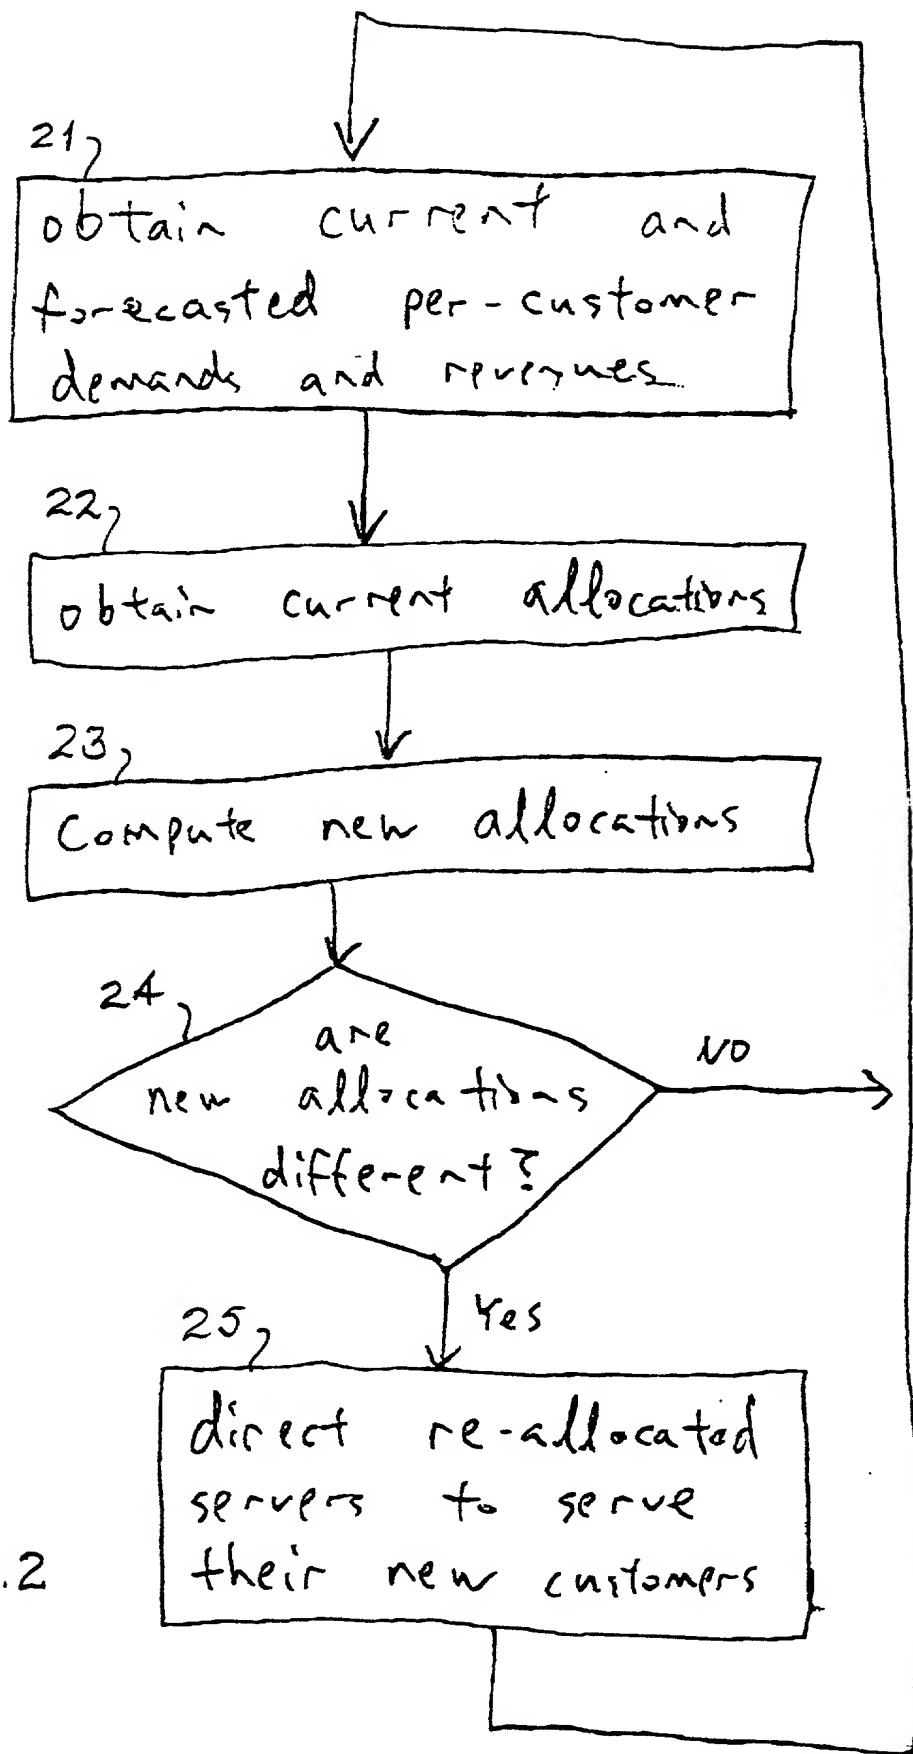 21
obtain current and
forecasted per-customer
demands and revenues
22
obtain current allocations
23
Compute new allocations
24
are
new allocations
different?
NO
Yes
25
direct re-allocated
servers to serve
their new customers
.2